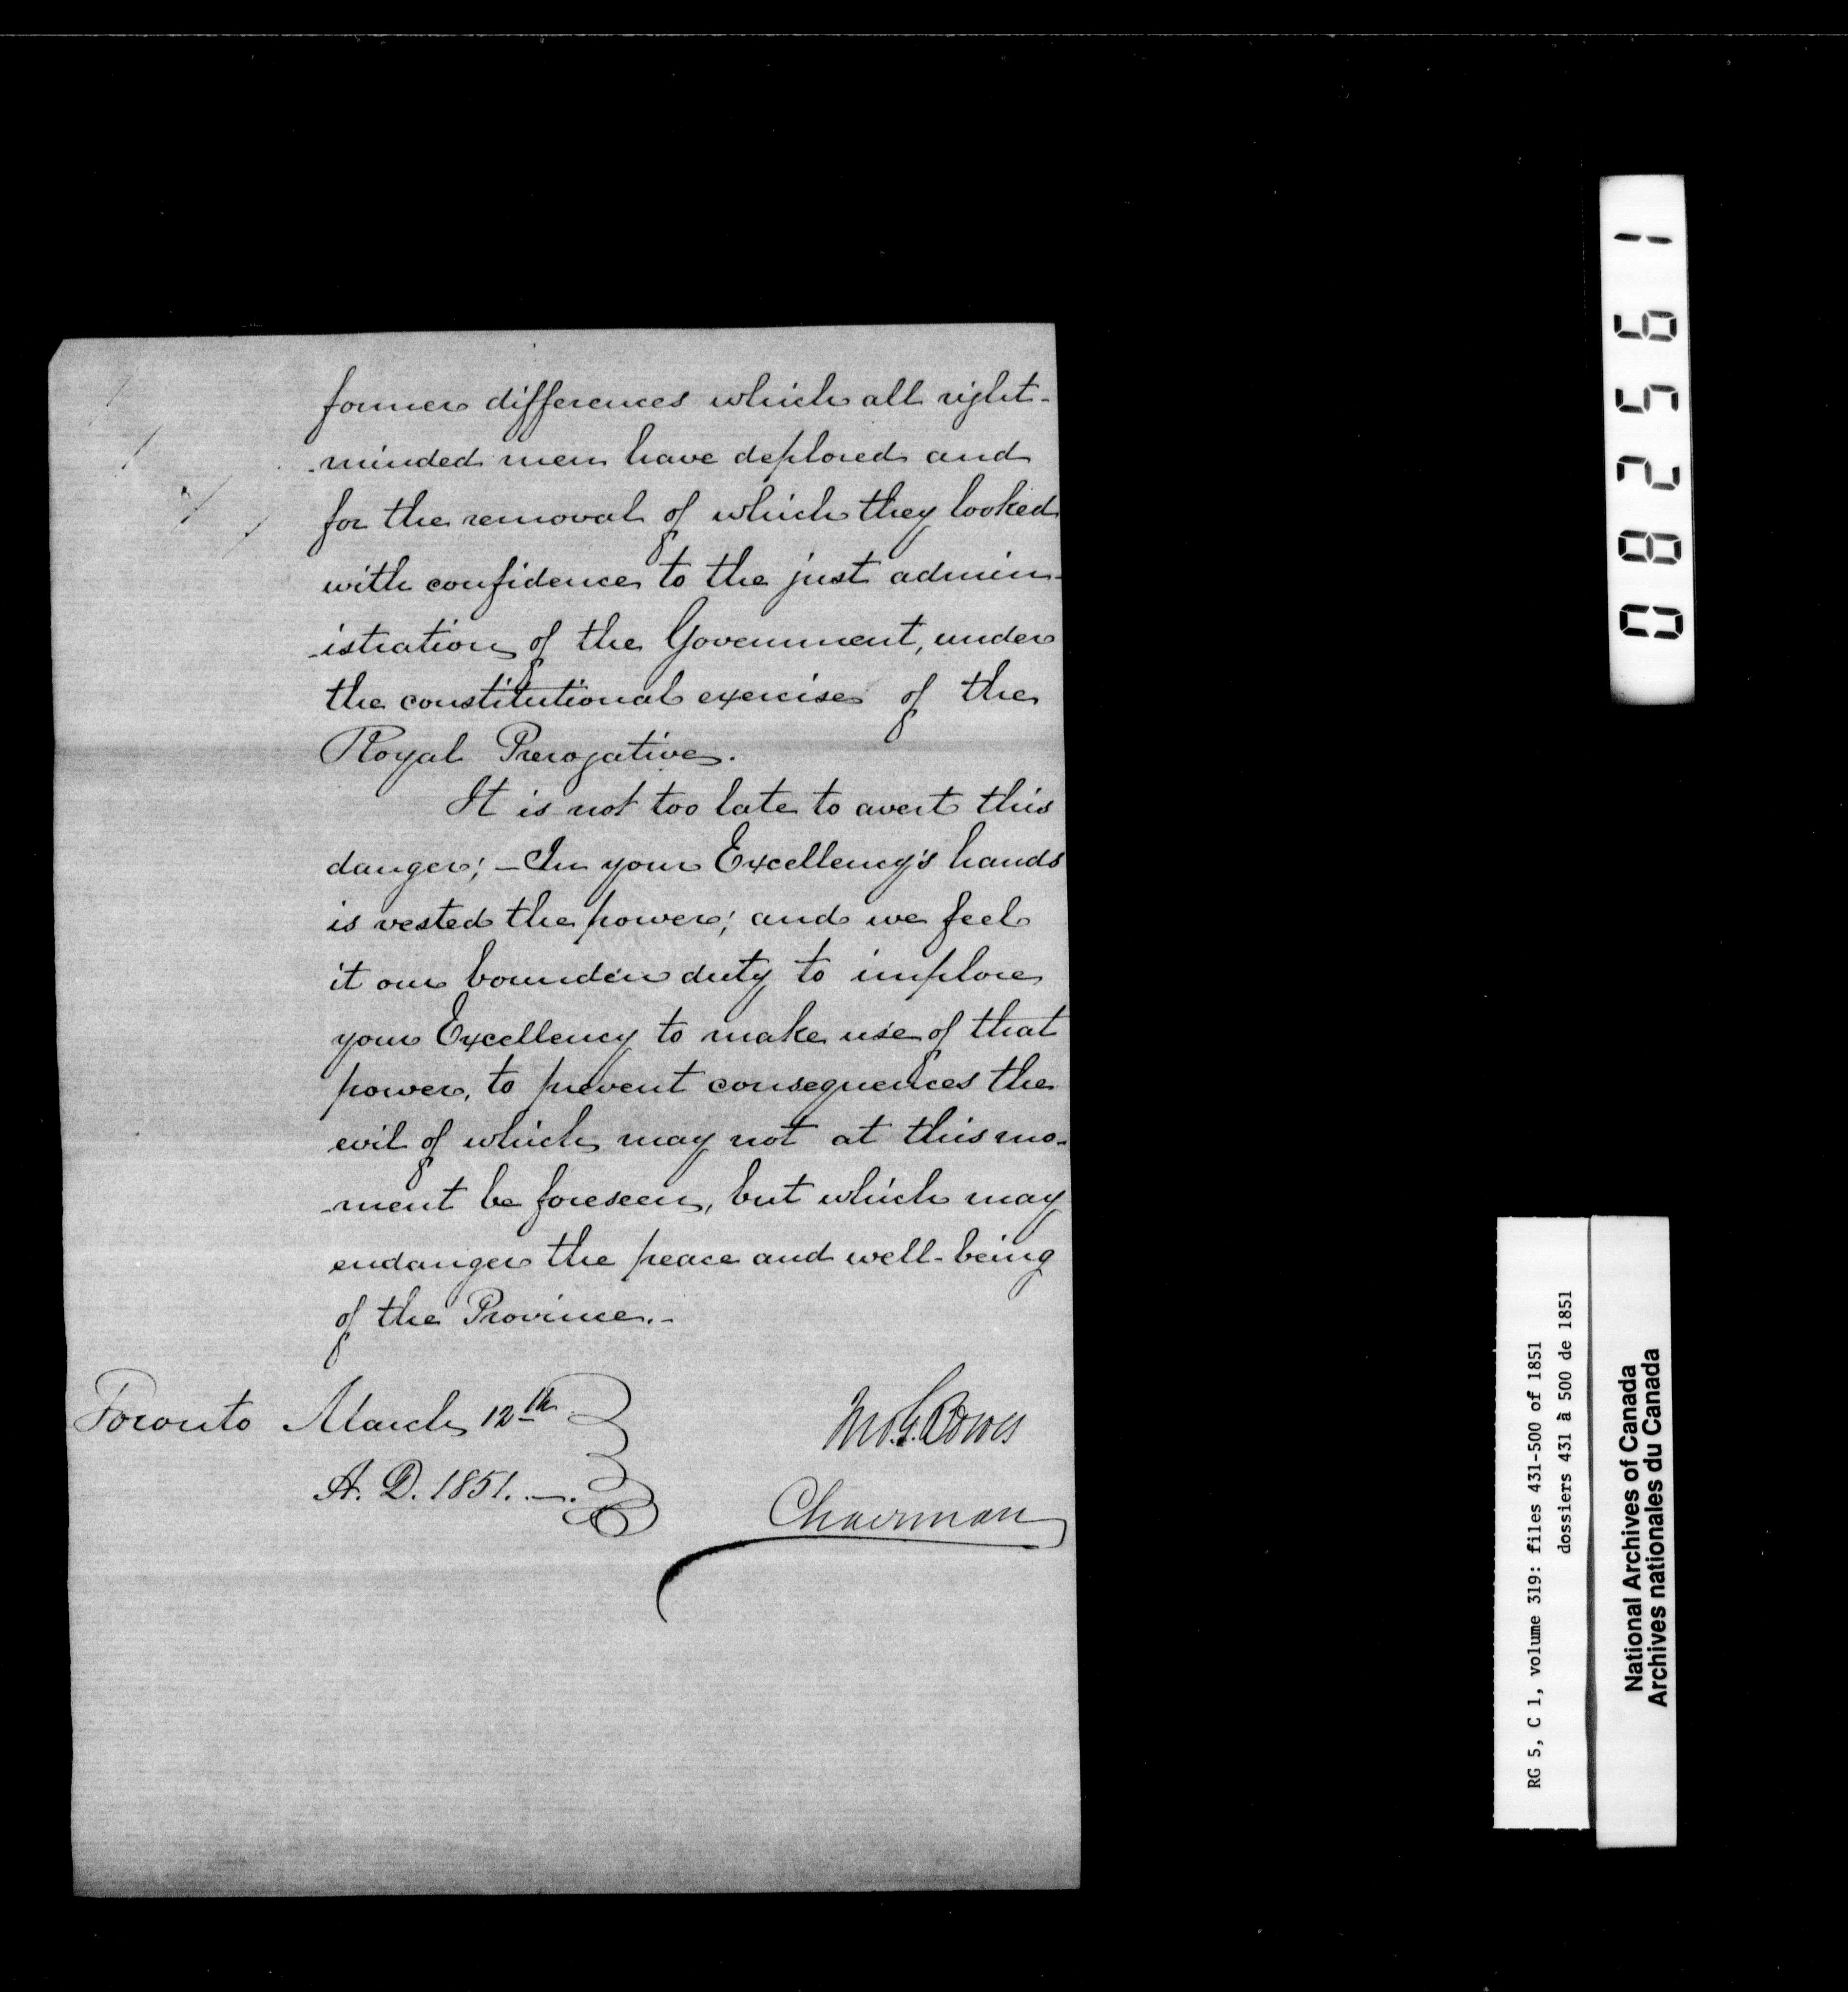 former differences which all right-
-minded men have deplored and
for the removal of which they looked
with confidence to the just admin-
-istration of the Government, under
the constitutional exercise of the
Royal Prerogative.
It is not too late to avert this
danger; - In your Excellency's hands
is vested the power; and we feel
it our bounden duty to implore
your Excellency to make use of that
power, to prevent consequences the
evil of which may not at this mo-
-ment be foreseen, but which may
endanger the peace and well-being
of the Province.-
Toronto March 12th
A. D. 1851. -.
Jno. G. Bowes
Chairman
082561
RG 5, C 1, volume 319: files 431-500 of 1851
dossiers 431 à 500 de 1851
National Archives of Canada
Archives nationales du Canada